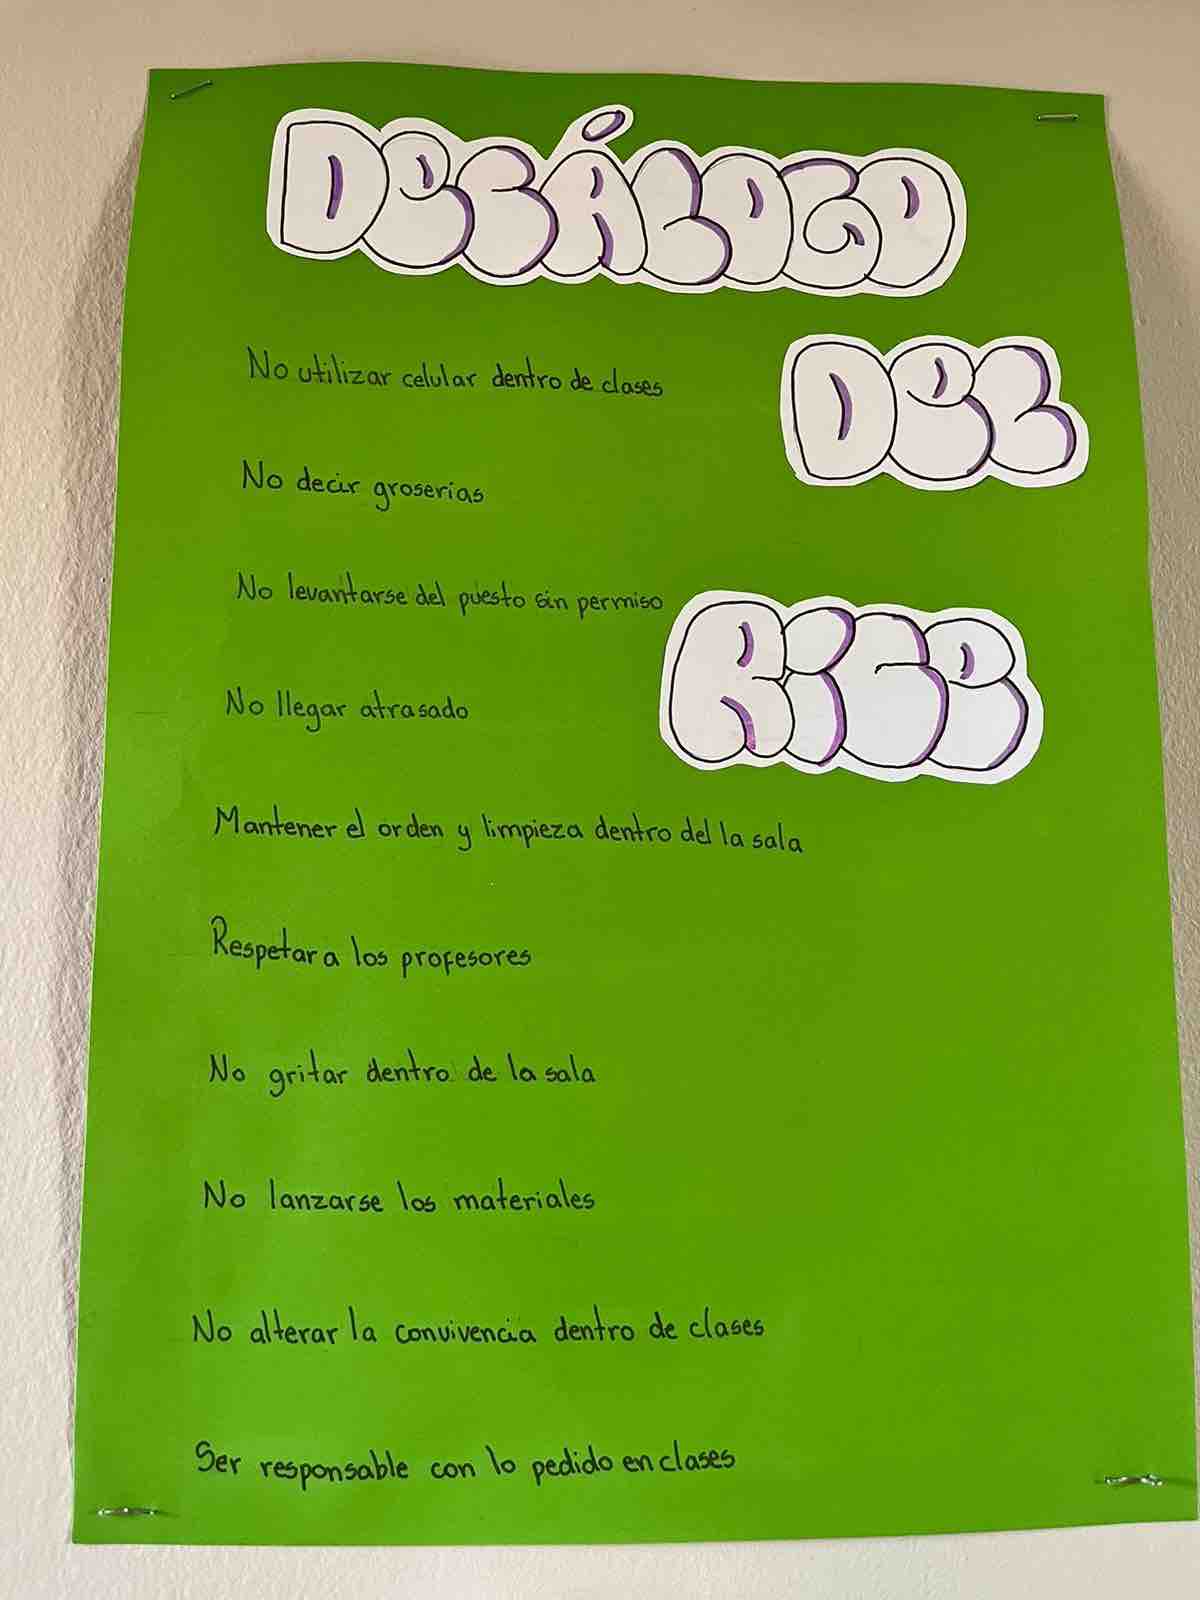 DeCÁLOGO
Del
RiCe
No utilizar celular dentro de clases
No decir groserias
No levantarse del puesto sin permiso
No llegar atrasado
Mantener el orden y limpieza dentro del la sala
Respetar a los profesores
No gritar dentro de la sala
No lanzarse los materiales
No alterar la convivencia dentro de clases
Ser responsable con lo pedido en clases